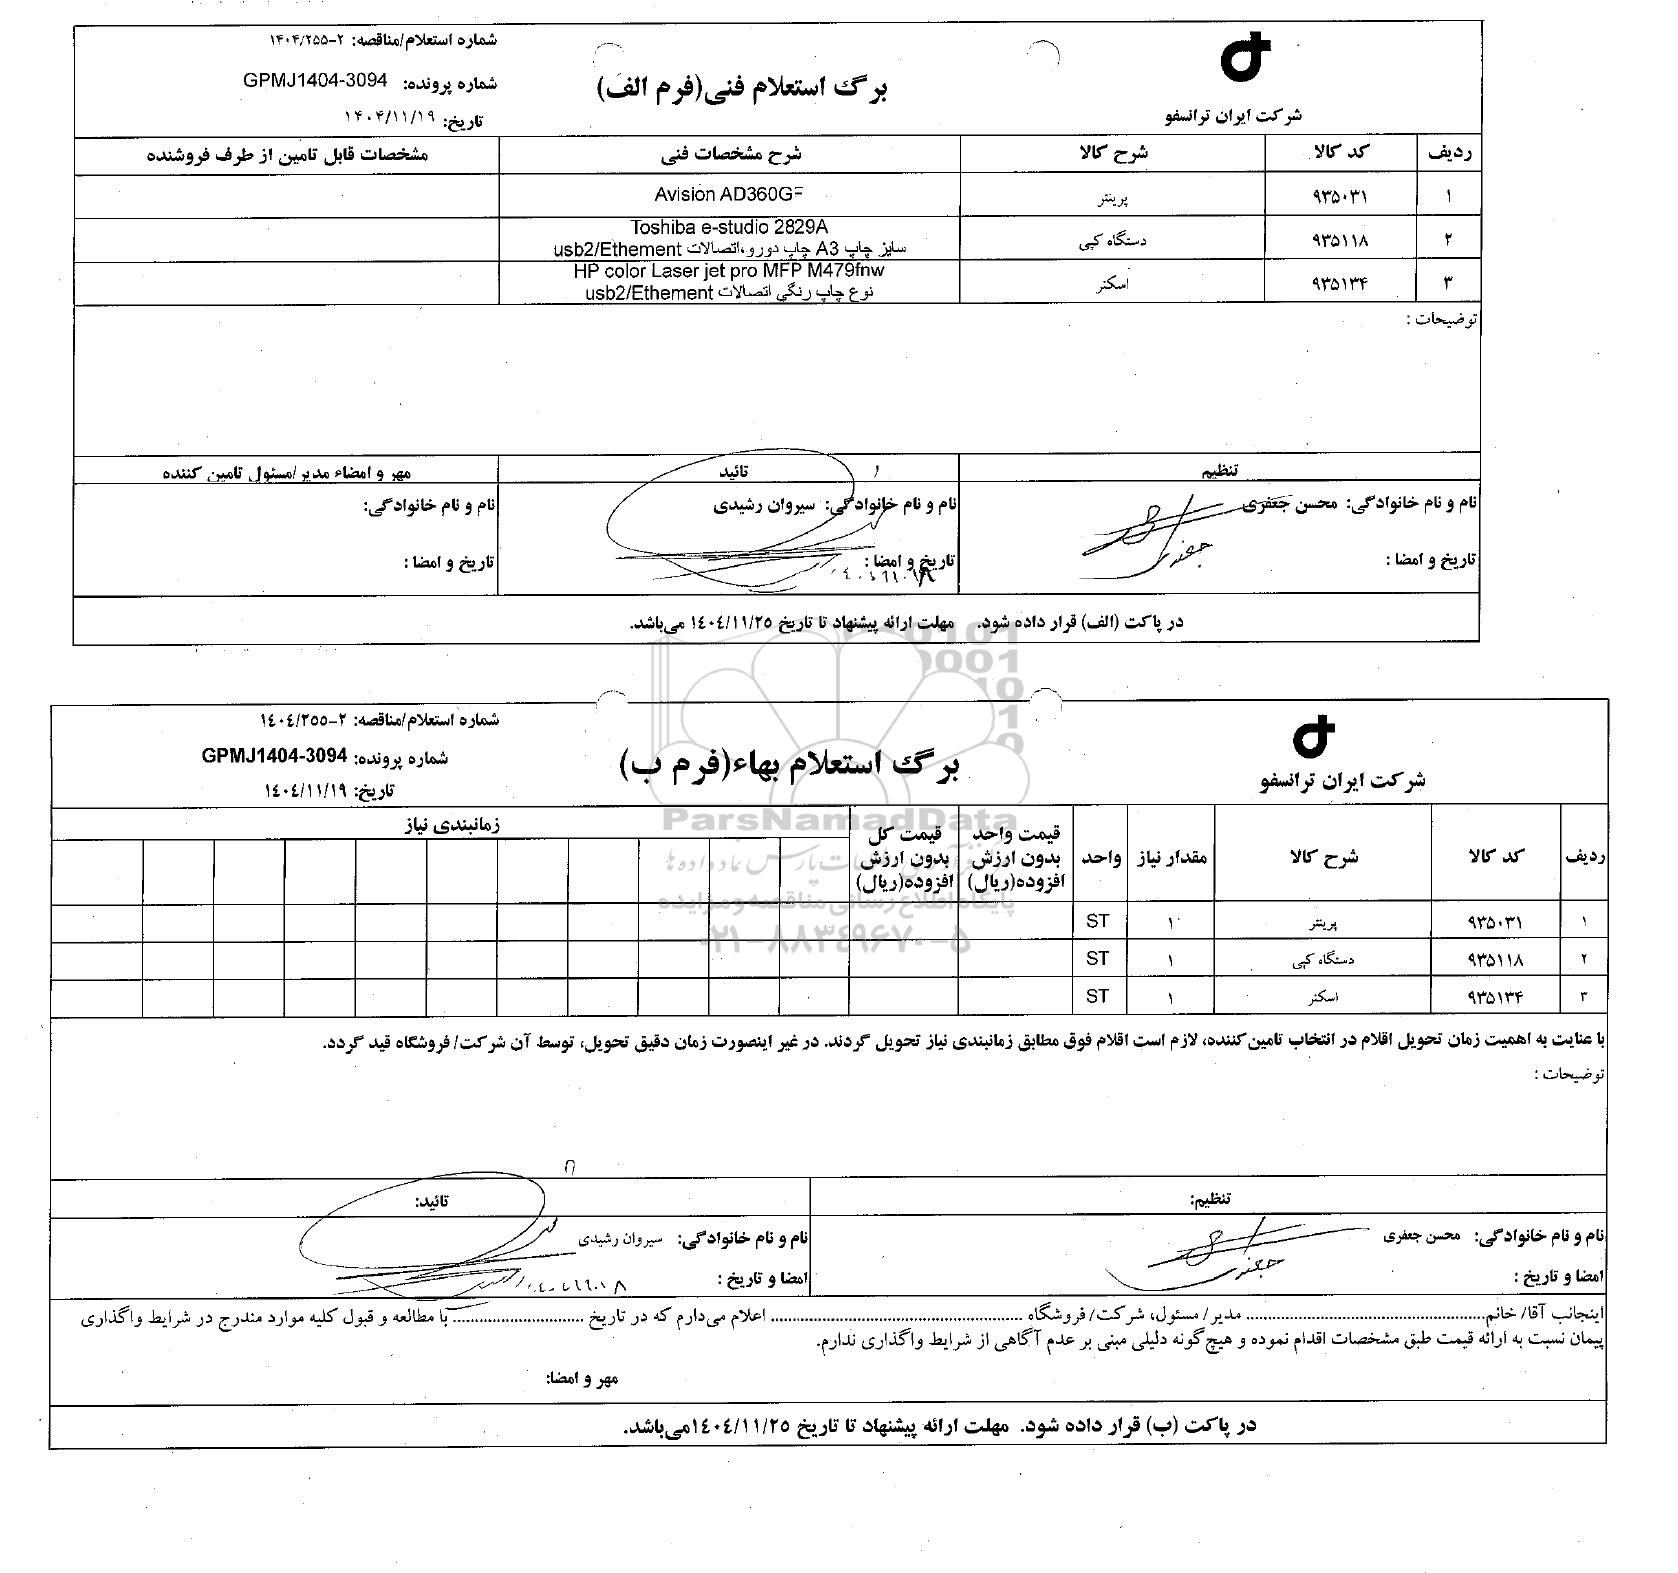 شماره استعلام/مناقصه: ۲-۱۴۰۴/۲۵۵
شماره پرونده: GPMJ1404-3094
تاریخ: ۱۴۰۴/۱۱/۱۹
برگ استعلام فنی(فرم الف)
شرکت ایران ترانسفو
ردیف کد کالا شرح کالا شرح مشخصات فنی مشخصات قابل تامین از طرف فروشنده
۱ ۹۳۵۰۳۱ پرینتر Avision AD360GF
۲ ۹۳۵۱۱۸ دستگاه کپی Toshiba e-studio 2829A
سایز چاپ A3 چاپ دورو،اتصالات usb2/Ethement
۳ ۹۳۵۱۳۴ اسکنر HP color Laser jet pro MFP M479fnw
نوع چاپ رنگی اتصالات usb2/Ethement
توضیحات :
تنظیم تائید مهر و امضاء مدیر/مسئول تامین کننده
نام و نام خانوادگی: محسن جعفری نام و نام خانوادگی: سیروان رشیدی نام و نام خانوادگی:
تاریخ و امضا : تاریخ و امضا : تاریخ و امضا :
جعفری
در پاکت (الف) قرار داده شود. مهلت ارائه پیشنهاد تا تاریخ ۱۴۰۴/۱۱/۲۵ می‌باشد.
شماره استعلام/مناقصه: ۲-۱۴۰۴/۲۵۵
شماره پرونده: GPMJ1404-3094
تاریخ: ۱۴۰۴/۱۱/۱۹
برگ استعلام بهاء(فرم ب)
شرکت ایران ترانسفو
ردیف کد کالا شرح کالا مقدار نیاز واحد قیمت واحد بدون ارزش افزوده(ریال) قیمت کل بدون ارزش افزوده(ریال) زمانبندی نیاز
۱ ۹۳۵۰۳۱ پرینتر ۱ ST
۲ ۹۳۵۱۱۸ دستگاه کپی ۱ ST
۳ ۹۳۵۱۳۴ اسکنر ۱ ST
ParsNamadData
پایگاه اطلاع رسانی مناقصه و مزایده
۰۲۱-۸۸۳۴۹۶۷۰-۵
با عنایت به اهمیت زمان تحویل اقلام در انتخاب تامین‌کننده، لازم است اقلام فوق مطابق زمانبندی نیاز تحویل گردند. در غیر اینصورت زمان دقیق تحویل، توسط آن شرکت/ فروشگاه قید گردد.
توضیحات :
تنظیم: تائید:
نام و نام خانوادگی: محسن جعفری نام و نام خانوادگی: سیروان رشیدی
امضا و تاریخ : امضا و تاریخ :
جعفری
اینجانب آقا/ خانم................ مدیر/ مسئول، شرکت/ فروشگاه ................ اعلام می‌دارم که در تاریخ ................ با مطالعه و قبول کلیه موارد مندرج در شرایط واگذاری
پیمان نسبت به ارائه قیمت طبق مشخصات اقدام نموده و هیچ‌گونه دلیلی مبنی بر عدم آگاهی از شرایط واگذاری ندارم.
مهر و امضا:
در پاکت (ب) قرار داده شود. مهلت ارائه پیشنهاد تا تاریخ ۱۴۰۴/۱۱/۲۵می‌باشد.